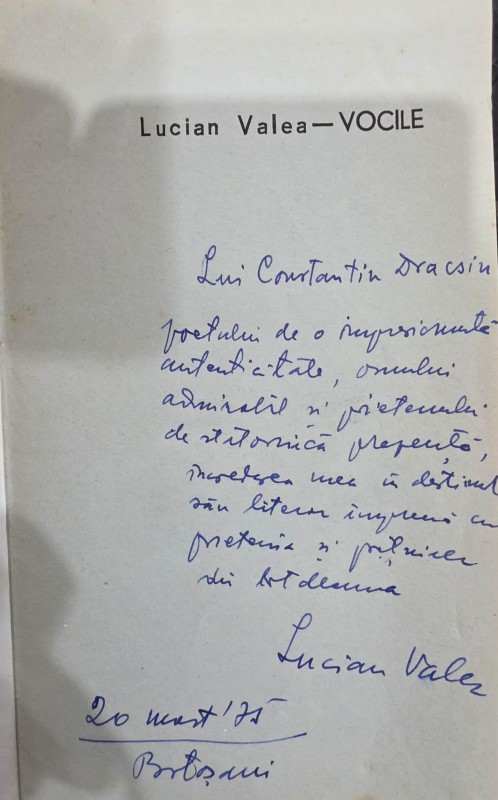 Lucian Valea — VOCILE
Lui Constantin Dracsin
poetului de o impresionantă
autenticitate, omului
admirabil și prietenului
de statornică prezență,
încrederea mea în destinul
său literar împreună cu
prietenia și prețuirea
din totdeauna
Lucian Valea
20 mart '75
Botoșani